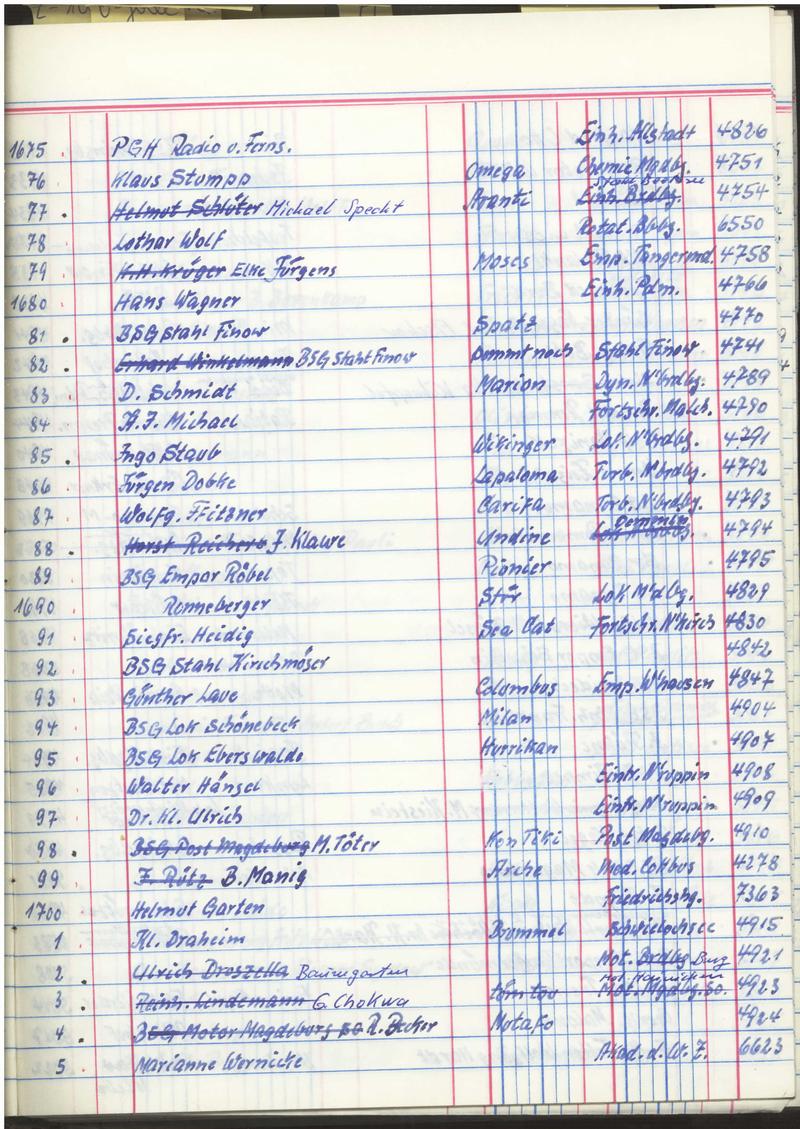 1675 PGH Radio u. Ferns. Einh. Altstadt 4826
76 Klaus Stumpp Omega Chemie Mgdbg. 4751
77 Helmut Schlüter Michael Specht Avanti Einh. Brdbg. 4754
78 Lothar Wolf Rotat. Bbbg. 6550
79 K.H. Krüger Elke Jürgens Moses Emp. Tangermd. 4758
1680 Hans Wagner Einh. Pdm. 4766
81 BSG Stahl Finow Spatz 4770
82 Erhard Winkelmann BSG Stahl Finow noch Stahl Finow 4741
83 D. Schmidt Marion Dyn. N'brdbg. 4789
84 H.J. Michael Fortschr. Malch. 4790
85 Ingo Staub Wikinger Lok N'brdbg. 4791
86 Jürgen Dobke Lapaloma Turb. N'brdbg. 4792
87 Wolfg. Fitzner Carifa Turb. N'brdbg. 4793
88 Horst Reichert J. Klawe Undine Demmin 4794
89 BSG Empor Röbel Pionier 4795
1690 Ronneberger Stör Lok M'dbg. 4829
91 Siegfr. Heidig Sea Cat Fortschr. N'kirch 4830
92 BSG Stahl Kirchmöser 4842
93 Günther Laue Columbus Emp. W'hausen 4847
94 BSG Lok Schönebeck Milan 4904
95 BSG Lok Eberswalde Hurrikan 4907
96 Walter Hänsel Eintr. N'ruppin 4908
97 Dr. Kl. Ulrich Eintr. N'ruppin 4909
98 BSG Post Magdeburg M. Töter KonTiki Post Magdebg. 4910
99 J. Rötz B. Manig Arche Med. Cottbus 4278
1700 Helmut Garten Friedrichshg. 7363
1 Kl. Draheim Brummel Schwielochsee 4915
2 Ulrich Droszella Baumgarten Mot. Brdbg Burg 4921
3 Reinh. Lindemann G. Chokwa Mot. Mgdbg. So. 4923
4 BSG Motor Magdeburg SO R. Becker Motafo 4924
5 Marianne Wernicke Akad. d. W. Z. 6623